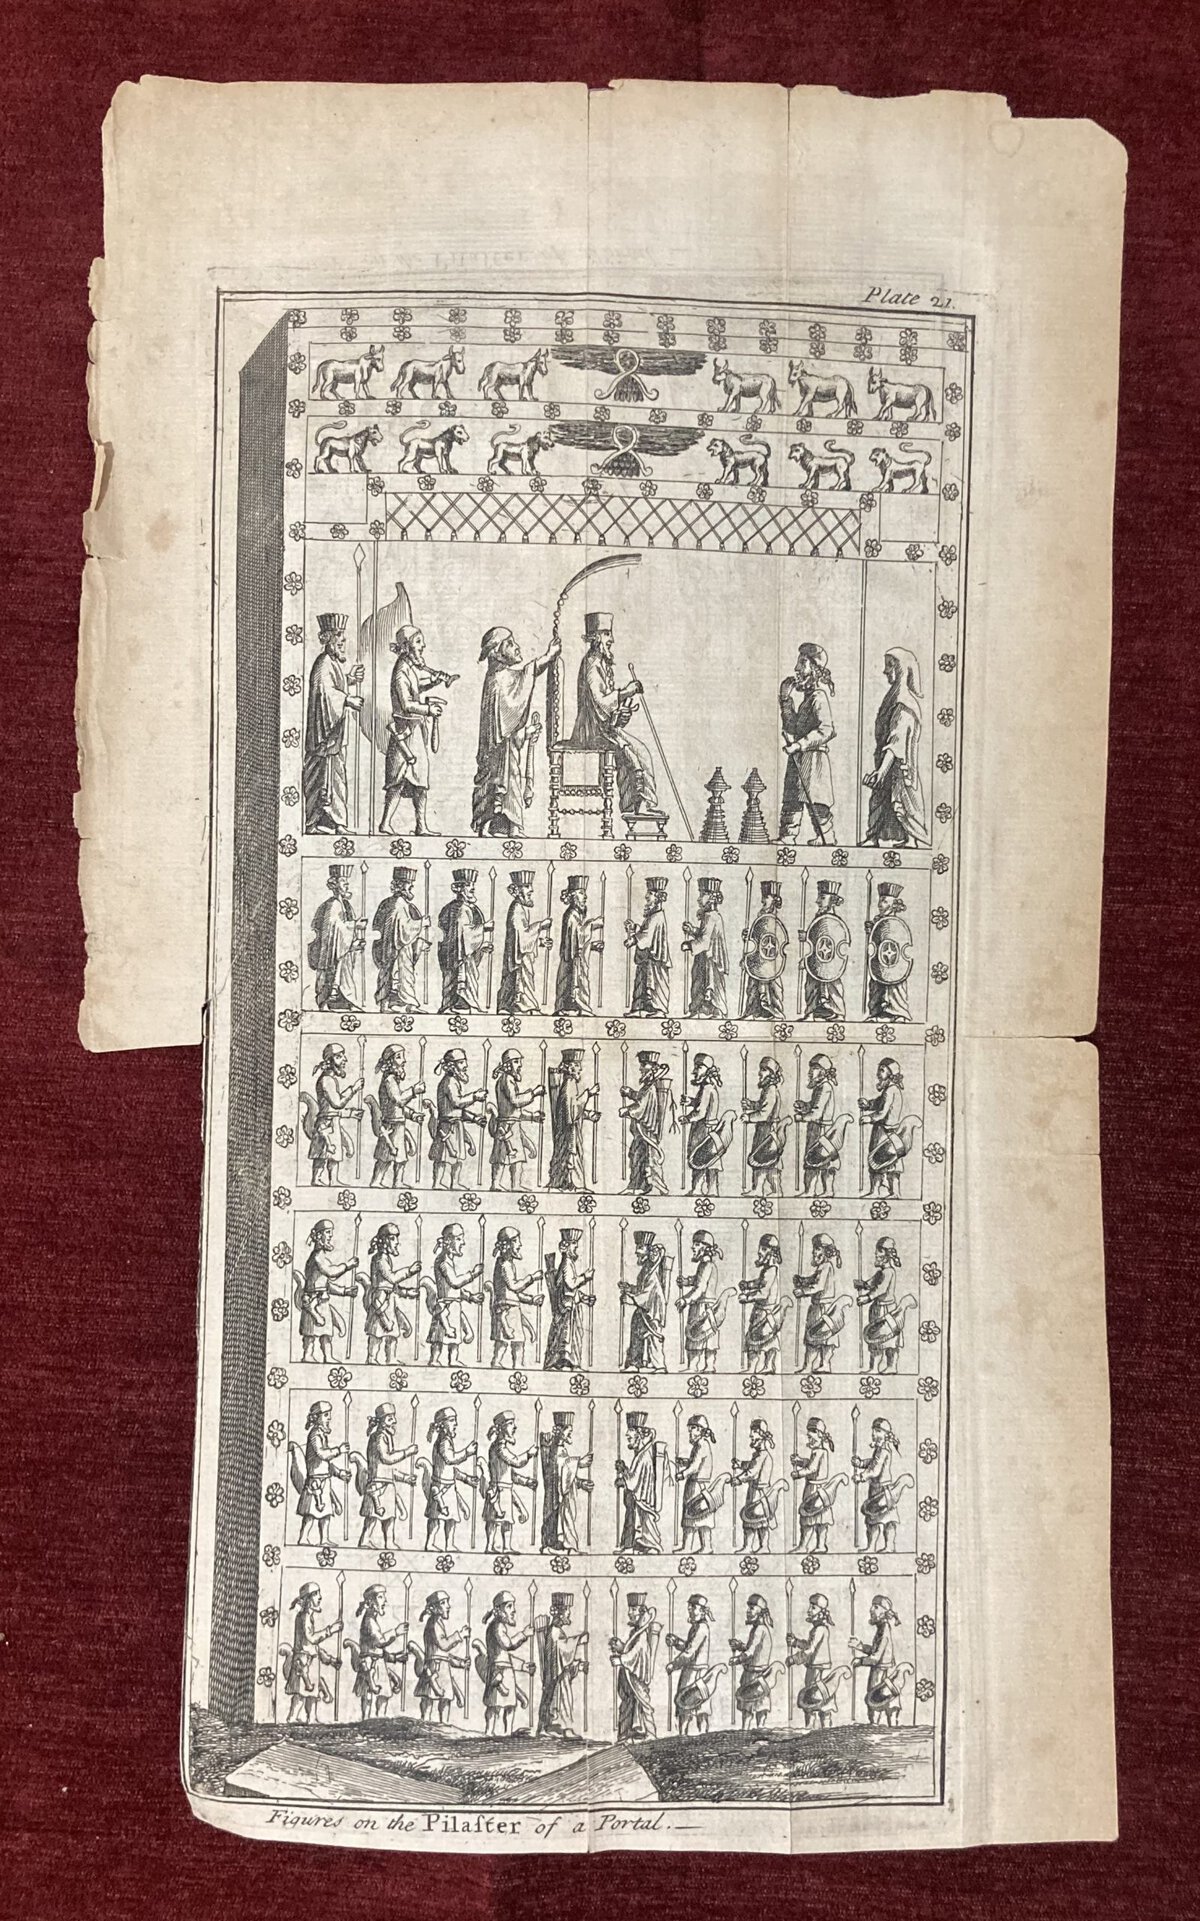 Plate 21.
Figures on the Pilaſter of a Portal.—